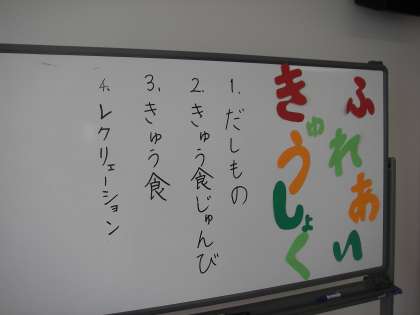 ふれあい
きゅうしょく
1. だしもの
2. きゅう食じゅんび
3. きゅう食
4. レクリェーション